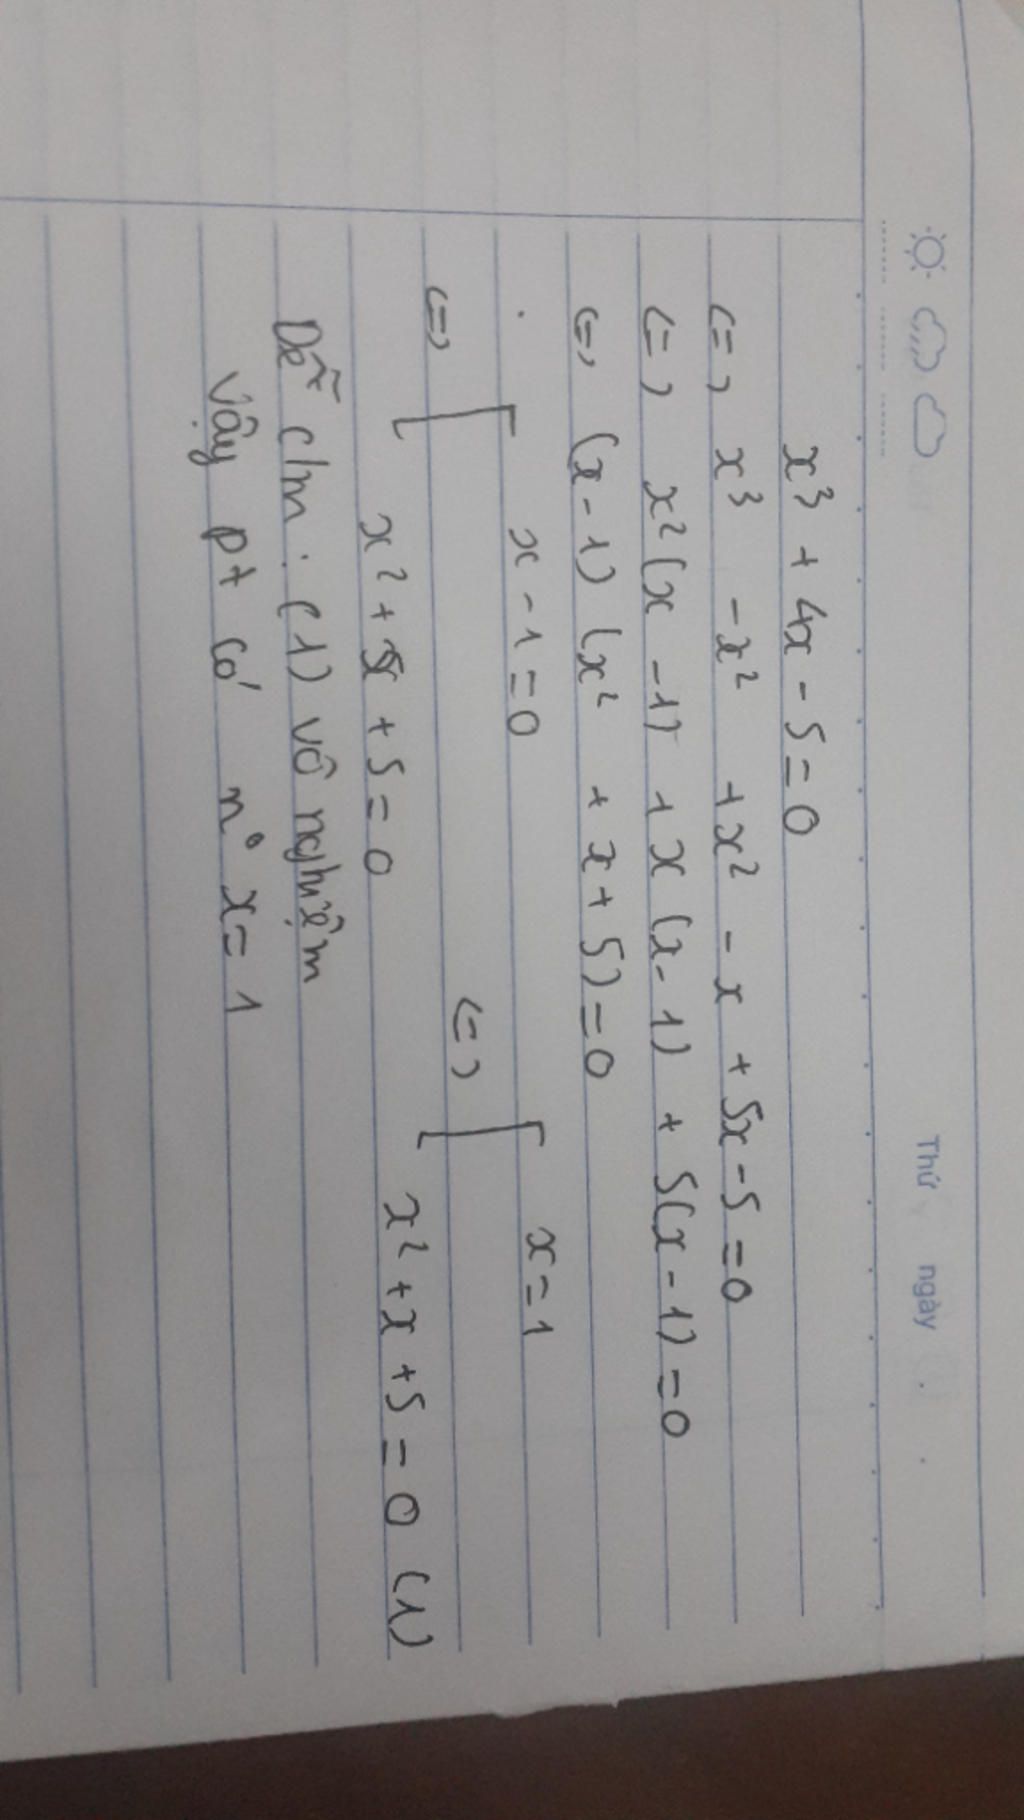 Thứ ngày
x³ + 4x - 5 = 0
<=> x³ - x² + x² - x + 5x - 5 = 0
<=> x²(x - 1) + x(x - 1) + 5(x - 1) = 0
<=> (x - 1)(x² + x + 5) = 0
<=> [ x - 1 = 0 <=> [ x = 1
x² + x + 5 = 0 x² + x + 5 = 0 (1)
Dễ c/m : (1) vô nghiệm
Vậy pt có n° x = 1